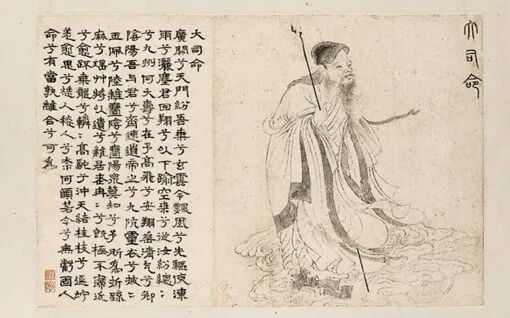 大司命
大司命
廣開兮天門紛吾乘兮玄雲令飄風兮先驅使凍
雨兮灑塵君回翔兮以下踰空桑兮從汝紛總〻
兮九州何夭壽兮在予高飛兮安翔乘清氣兮御
陰陽吾與君兮齊速道帝之兮九坑靈衣兮披〻
玉佩兮陸離壹陰兮壹陽衆莫知兮予所為折疏
麻兮瑶華將以遺兮離居老冉〻兮既極不寖近
兮愈踈乘龍兮轔〻高馳兮沖天結桂枝兮延竚
羌愈思兮愁人愁人兮奈何願若今兮無虧固人
命兮有當孰離合兮可為